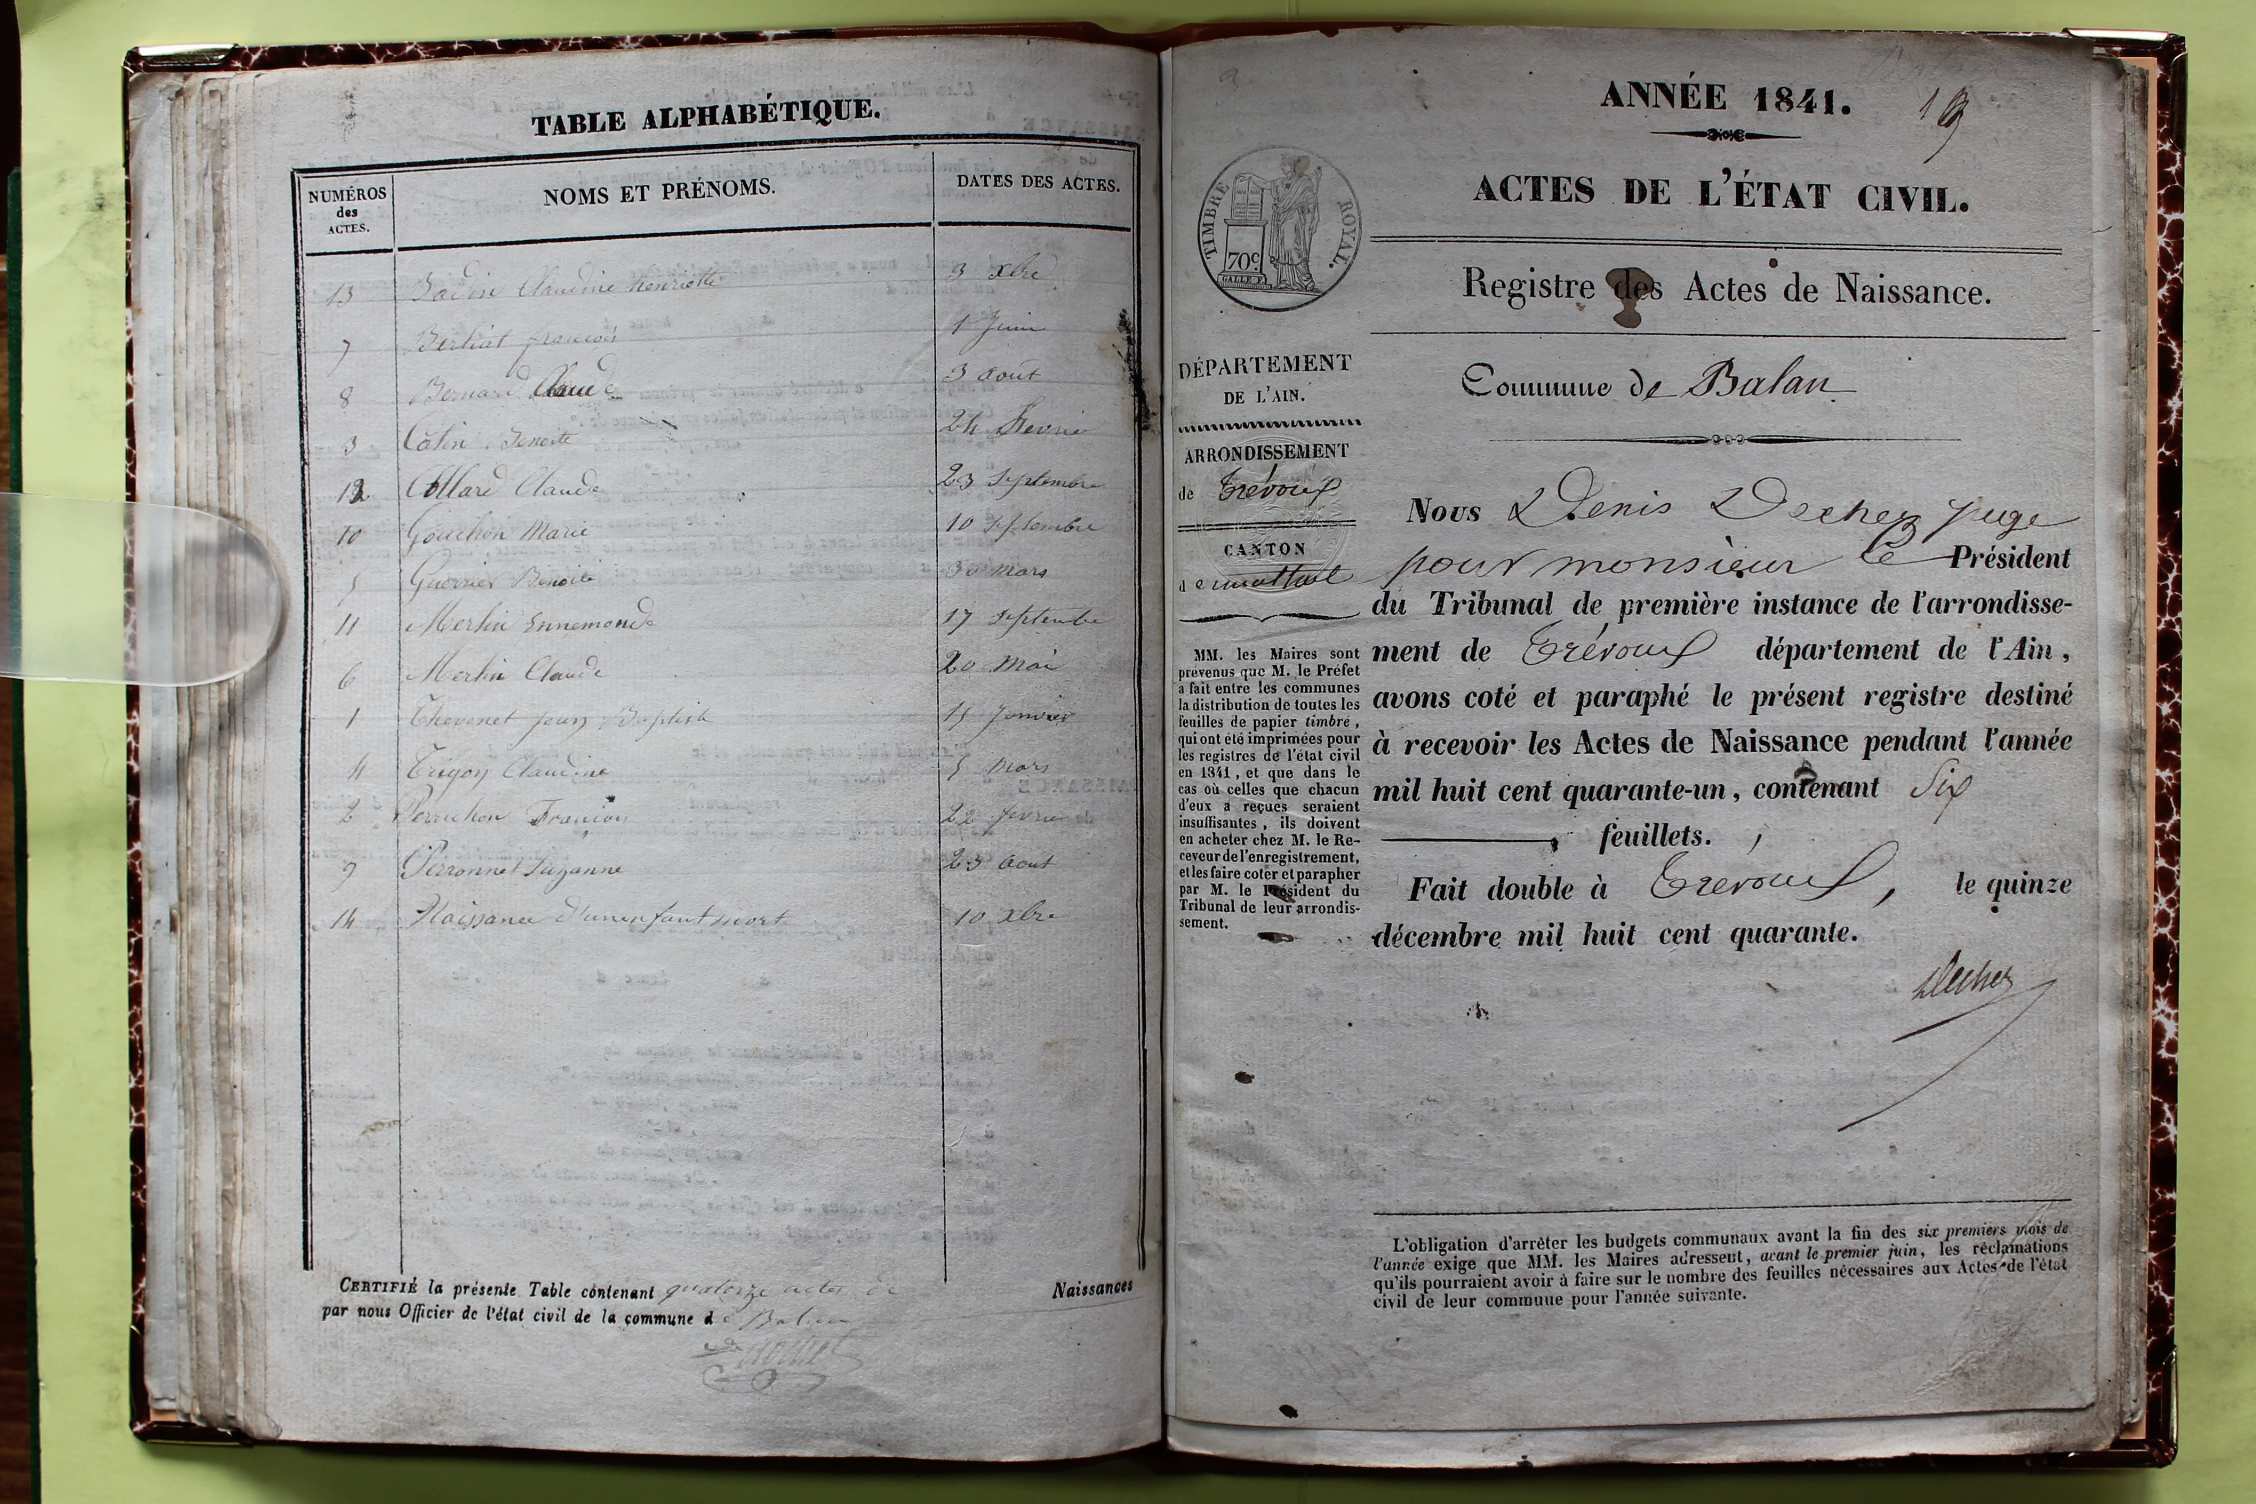 TABLE ALPHABÉTIQUE.
NUMÉROS des ACTES. NOMS ET PRÉNOMS. DATES DES ACTES.
13 Claudine henriette 3 xbre
7 Berliat françois 1 Juin
8 Bernard Claude 3 Aout
3 Catin Benoite 24 fevrier
12 Collard Claude 23 Septembre
10 Gouchon Marie 10 Septembre
5 Guerrier Benoite 30 mars
11 Merlin Ennemonde 17 Septembre
6 Merlin Claude 20 Mai
1 Thevenet jean Baptiste 15 Janvier
4 Trigon Claudine 5 Mars
2 Perruchon François 22 fevrier
9 Perronnet Suzanne 23 Aout
14 Naissance d'un enfant mort 10 xbre
CERTIFIÉ la présente Table contenant quatorze actes de Naissances
par nous Officier de l'état civil de la commune de Balan
ANNÉE 1841.
ACTES DE L'ÉTAT CIVIL.
TIMBRE ROYAL.
70c.
Registre des Actes de Naissance.
DÉPARTEMENT
DE L'AIN.
ARRONDISSEMENT
de Trévoux
CANTON
de
MM. les Maires sont
prévenus que M. le Préfet
a fait entre les communes
la distribution de toutes les
feuilles de papier timbré,
qui ont été imprimées pour
les registres de l'état civil
en 1841, et que dans le
cas où celles que chacun
d'eux a reçues seraient
insuffisantes, ils doivent
en acheter chez M. le Re-
ceveur de l'enregistrement,
et les faire coter et parapher
par M. le Président du
Tribunal de leur arrondis-
sement.
Commune de Balan
Nous Denis Decher juge
pour monsieur le Président
du Tribunal de première instance de l'arrondisse-
ment de Trévoux département de l'Ain,
avons coté et paraphé le présent registre destiné
à recevoir les Actes de Naissance pendant l'année
mil huit cent quarante-un, contenant Six
feuillets.
Fait double à Trévoux, le quinze
décembre mil huit cent quarante.
Decher
L'obligation d'arrêter les budgets communaux avant la fin des six premiers mois de
l'année exige que MM. les Maires adressent, avant le premier juin, les réclamations
qu'ils pourraient avoir à faire sur le nombre des feuilles nécessaires aux Actes de l'état
civil de leur commune pour l'année suivante.